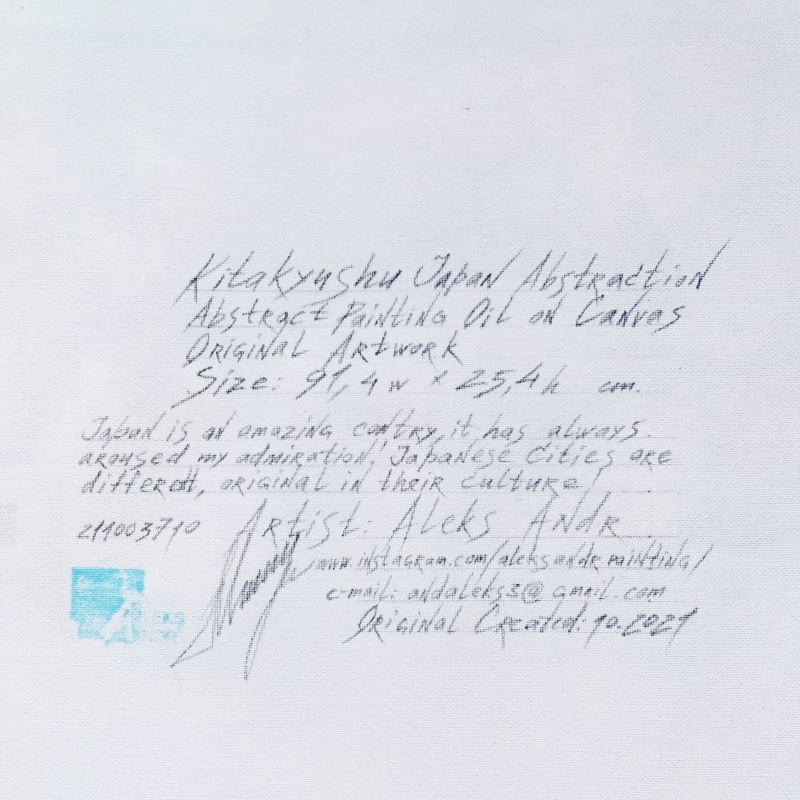 Kitakyushu Japan Abstraction
Abstract Painting Oil on Canvas
Original Artwork
Size: 91,4w x 25,4h cm.
Japan is an amazing contry, it has always
aroused my admiration! Japanese Cities are
different, original in their culture!
211003710 Artist: Aleks Andr
www.instagram.com/aleksandr.painting/
e-mail: andaleks3@gmail.com
Original Created: 10.2021